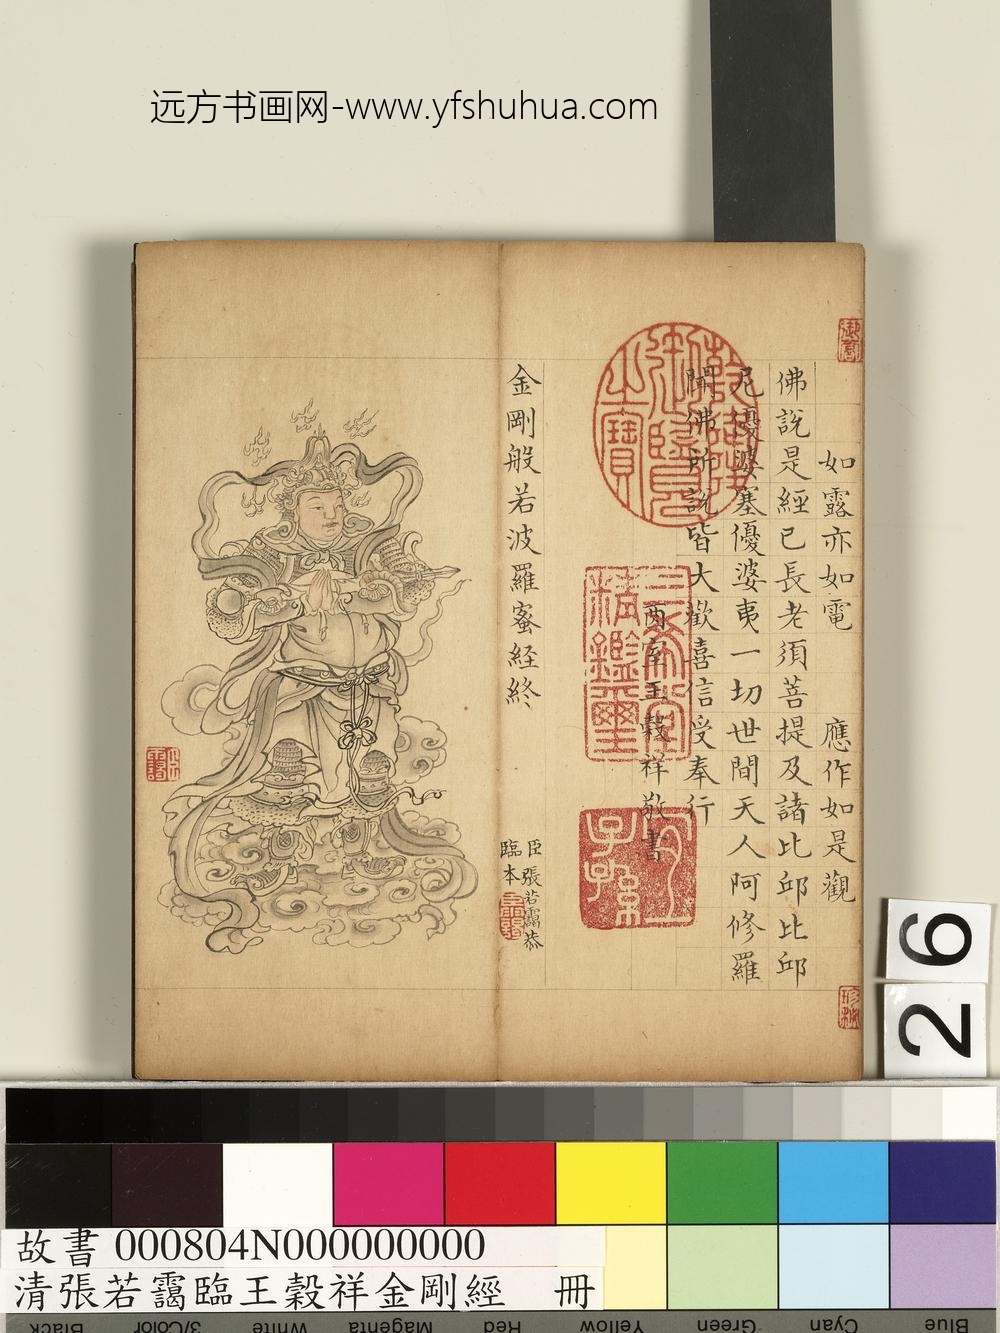 远方书画网-www.yfshuhua.com
如露亦如電　應作如是觀
佛説是經已長老須菩提及諸比邱比邱
尼優婆塞優婆夷一切世間天人阿修羅
聞佛所説皆大歡喜信受奉行
酉室王穀祥敬書
金剛般若波羅蜜経終
臣張若靄恭
臨本
乾隆御覽之寶
三希堂精鑑璽
宜子孫
26
故書 000804N000000000
清張若靄臨王穀祥金剛經　冊
Black
3/Color
White
Magenta
Red
Yellow
Green
Cyan
Blue